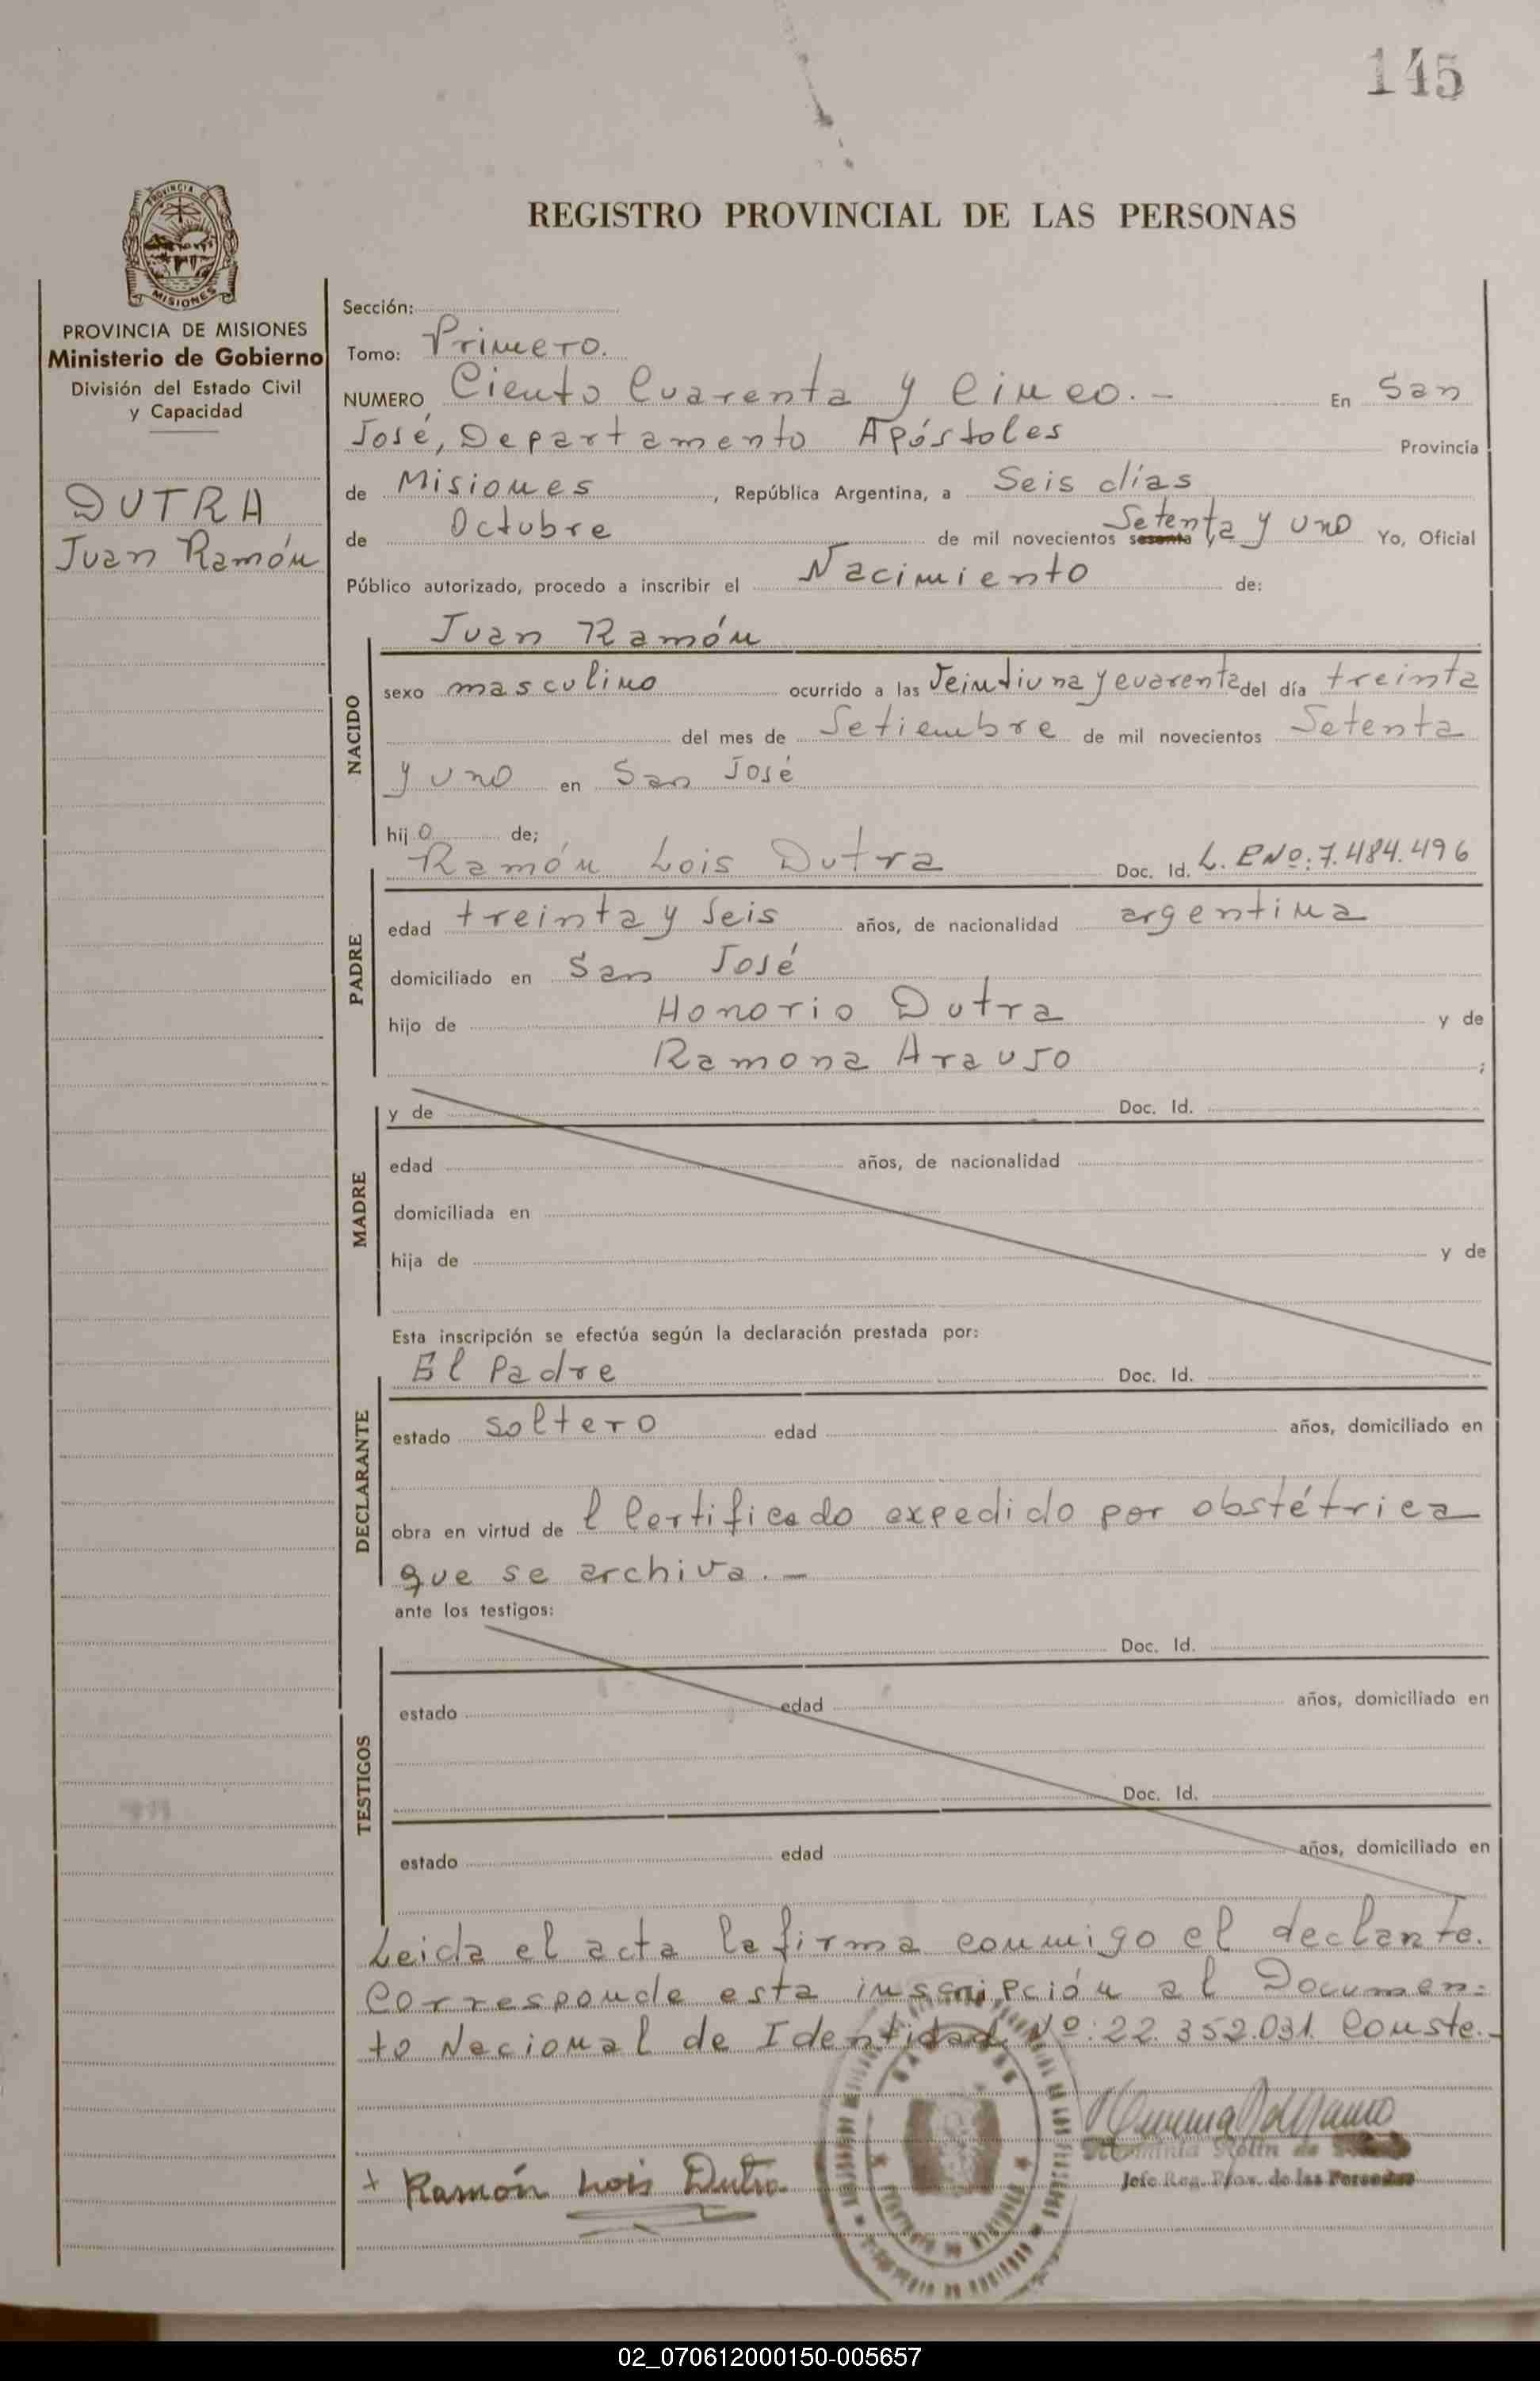 145
PROVINCIA
MISIONES
REGISTRO PROVINCIAL DE LAS PERSONAS
PROVINCIA DE MISIONES
Ministerio de Gobierno
División del Estado Civil
y Capacidad
DUTRA
Juan Ramón
Sección:
Tomo: Primero.
NUMERO Ciento Cuarenta y Cinco.- En San
José, Departamento Apóstoles Provincia
de Misiones, República Argentina, a Seis días
de Octubre de mil novecientos sesenta y Setenta y uno Yo, Oficial
Público autorizado, procedo a inscribir el Nacimiento de:
NACIDO
Juan Ramón
sexo masculino ocurrido a las Veintiuna y cuarenta del día treinta
del mes de Setiembre de mil novecientos Setenta
y uno en San José
hijo de;
PADRE
Ramón Lois Dutra Doc. Id. L. E Nº: 7.484.496
edad treinta y seis años, de nacionalidad argentina
domiciliado en San José
hijo de Honorio Dutra y de
Ramona Araujo ;
MADRE
y de Doc. Id.
edad años, de nacionalidad
domiciliada en
hija de y de
Esta inscripción se efectúa según la declaración prestada por:
DECLARANTE
El Padre Doc. Id.
estado soltero edad años, domiciliado en
obra en virtud de l Certificado expedido por obstétrica
que se archiva.-
ante los testigos:
TESTIGOS
Doc. Id.
estado edad años, domiciliado en
Doc. Id.
estado edad años, domiciliado en
Leida el acta la firma conmigo el declante.
Corresponde esta inscripción al Documen-
to Nacional de Identidad Nº: 22.352.031. Conste.-
+ Ramón Lois Dutra
Jefe Reg. Prov. de las Personas
02_070612000150-005657